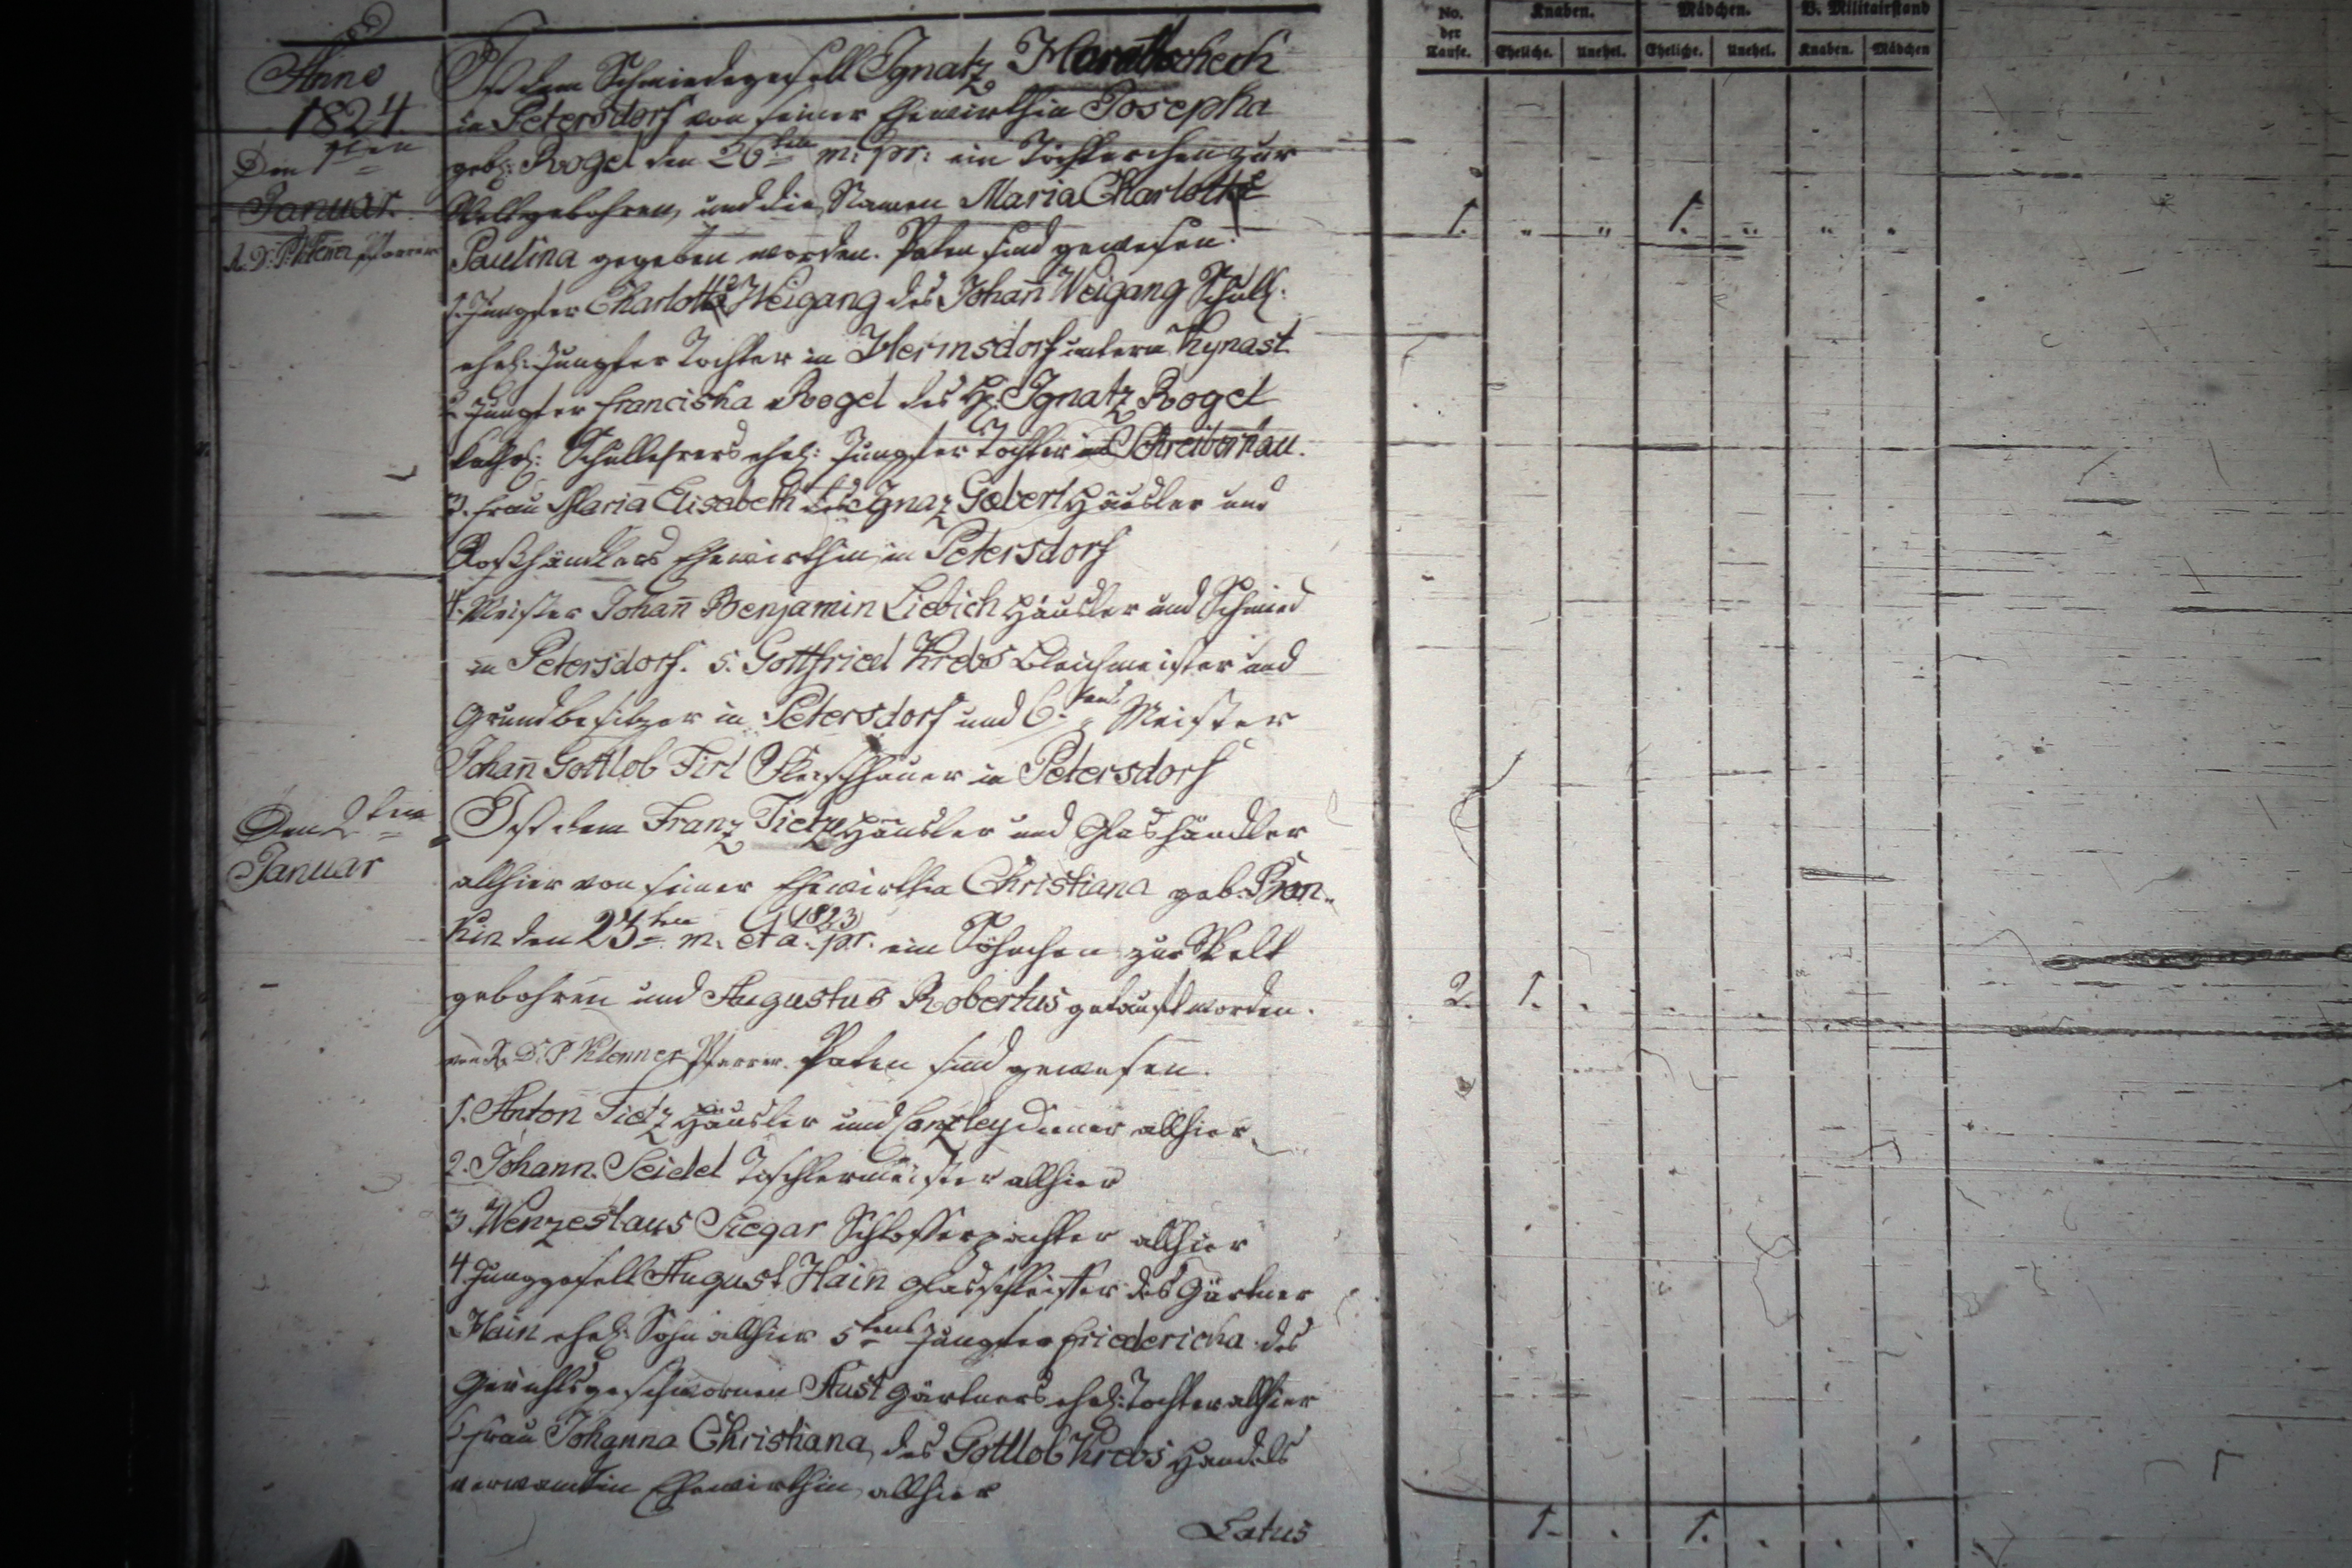 No. der Taufe. Knaben. Mädchen. V. Militairstand
Eheliche. Unehel. Eheliche. Unehel. Knaben. Mädchen
Anno
1824
Den 1ten
Januar.
R. D. P. Klenner Pfarrer
Ist dem Schmiedegesell Ignatz
in Petersdorf von seiner Ehewirthin Josepha
geb: Rogel den 26ten m: pr: ein Töchterchen zur
Welt gebohren, und die Namen Maria Charlotte
Paulina gegeben worden. Paten sind gewesen:
1. Jungfer Charlotte Weigang des Johan̄ Weigang Schull:
ehel: Jungfer Tochter in Hermsdorf untern Kynast
2. Jungfer Franciska Rogel des H: Ignatz Rogel
kathol: Schullehrers ehel: Jungfer Tochter in Schreibershau.
3. Frau Maria Elisabeth des Ignaz Gebert Häusler und
Roßhändlers Ehewirthin in Petersdorf
4. Meister Johan̄ Benjamin Liebich Häusler und Schmied
in Petersdorf. 5. Gottfried Krebs Bleichmeister und
Grundbesitzer in Petersdorf und 6.tens Meister
Johan̄ Gottlob Firl Fleischhauer in Petersdorf
1. " " 1. " " "
Den 2ten
Januar
Ist dem Franz Tietze Häusler und Glashändler
allhier von seiner Ehewirthin Christiana geb.
den 23ten m. et a. (1823) pr. ein Söhnchen zur Welt
gebohren und Augustus Robertus getauft worden.
von R. D. P. Klenner Pfarrer. Paten sind gewesen.
1. Anton Tietz Häusler und Canzleydiener allhier
2. Johann Seidel Tischlermeister allhier
3. Wenzeslaus Siegar allhier
4. Junggesell August Hain Glasschleiffer des Gärtner
Hain ehel: Sohn allhier 5tens Jungfer Friedericka des
Gerichtsgeschwornen Aust Gärtners ehel: Tochter allhier
6. Frau Johanna Christiana des Gottlob Krebs Handels
Ehewirthin allhier
2. 1.
Latus
1. . 1. . . .